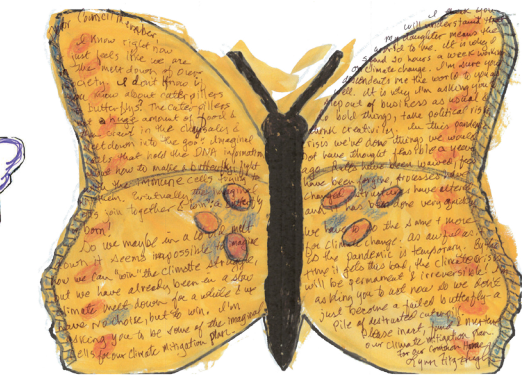 Dear Council Member
I know right now
just feels like we are
in the melt down of our
society. I don't know if
you know about caterpillars
butterflys? The caterpillars
a huge amount of
in the
melt down into the goo. Imaginal
cells that hold the DNA information
how to make a butterfly
the imaginal cells
Eventually the imaginal
cells join together & form a butterfly
born!
So we maybe in a
down it seems impossible to imagine
how we can "win" the climate
but we have already been in a slow
climate melt down for a while & we
have no choice, but to win. I'm
asking you to be some of the imaginal
cells for our climate mitigation plan.
I think you
will understand that
my daughter means the
world to me. It is why I
spend so hours a week working
on climate change. I'm sure you
descendents are the world to you as
well. It is why I'm asking you
step out of business as usual &
do bold things, take political risk
creatively. In this pandemic
crisis we've done things we would
not have thought feasible a year
ago. Rules have been waived, fees
have been processes have
have altered
and has been done very quickly
We have to do the same & more
for climate change. As awful as
the pandemic is temporary. By the
time it gets this bad, the climate crisis
will be permanent & irreversible. I'm
asking you to act now so we don't
just become a failed butterfly - a
pile of
Please insert
our climate mitigation plan
for our common home.
Lynn Fitz-Hugh